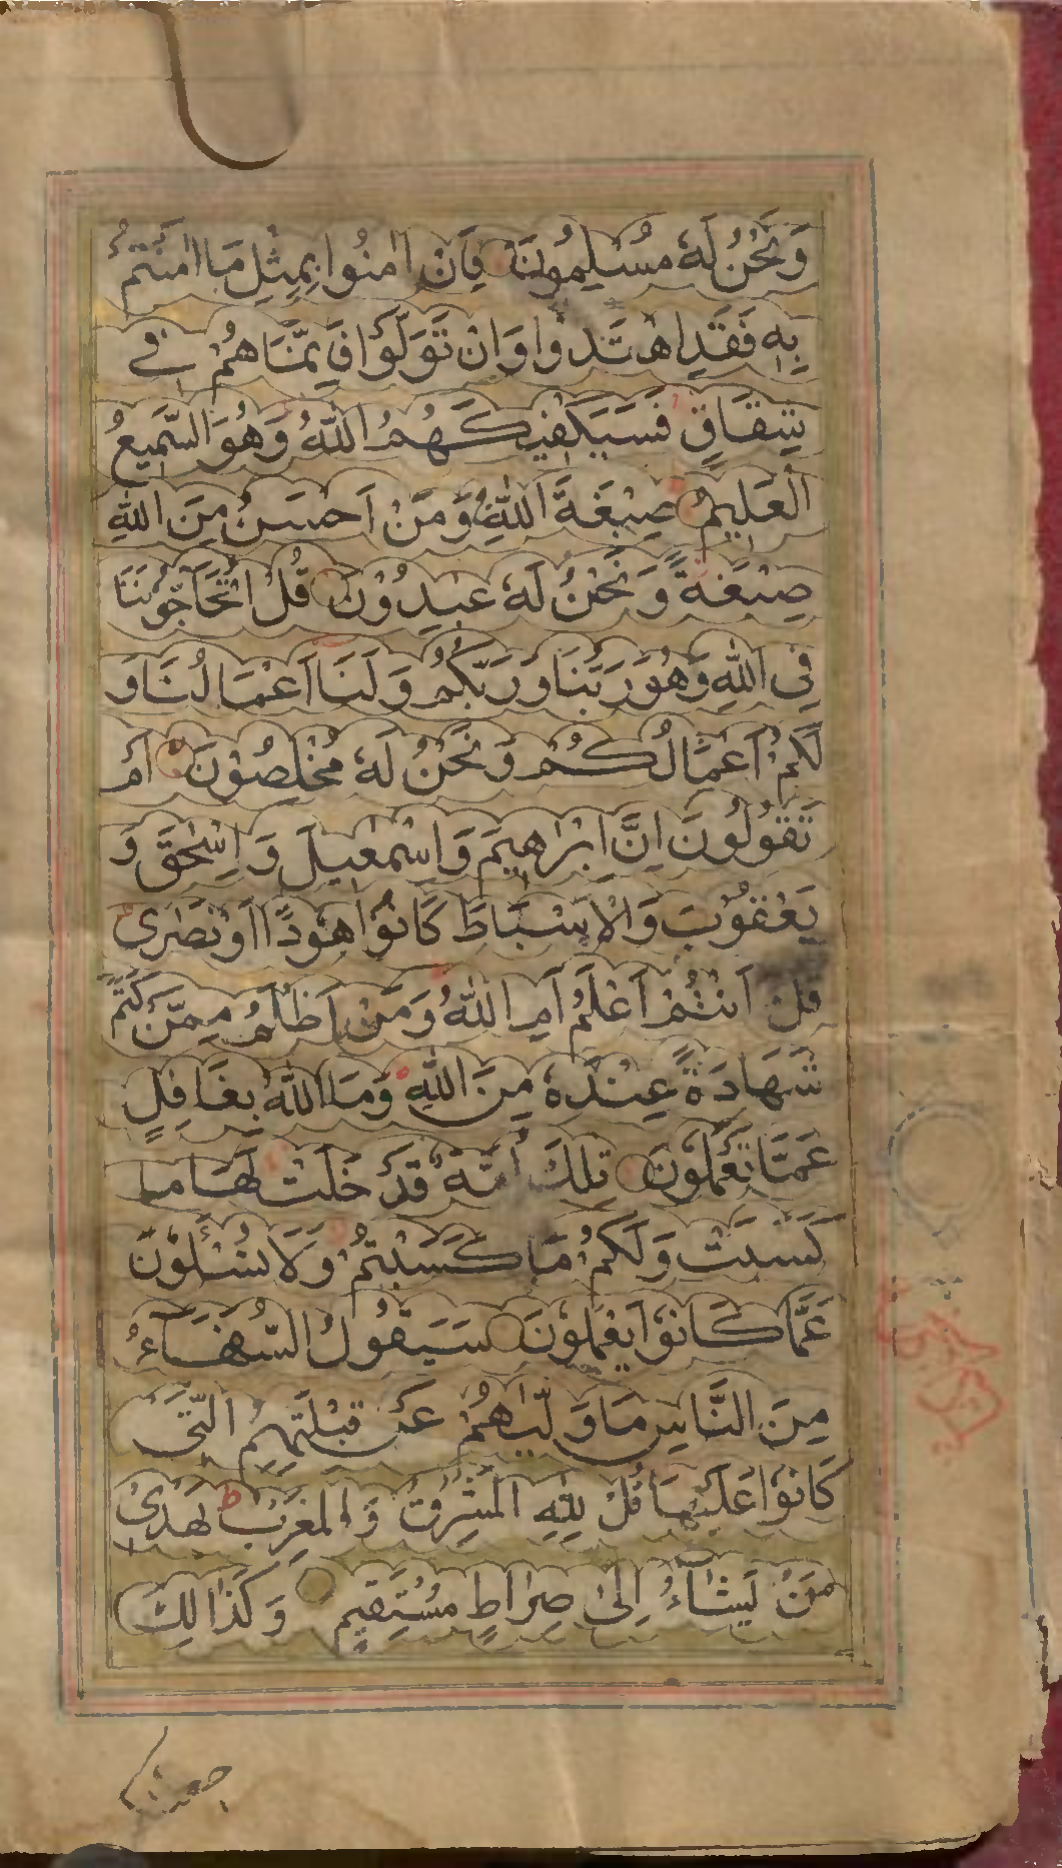 وَنَحْنُ لَهٗ مُسْلِمُوْنَ فَاِنْ اٰمَنُوْا بِمِثْلِ مَا اٰمَنْتُمْ
بِهٖ فَقَدِ اهْتَدَوْا وَاِنْ تَوَلَّوْا فَاِنَّمَا هُمْ فِيْ
شِقَاقٍ فَسَيَكْفِيْكَهُمُ اللّٰهُ وَهُوَ السَّمِيْعُ
الْعَلِيْمُ صِبْغَةَ اللّٰهِ وَمَنْ اَحْسَنُ مِنَ اللّٰهِ
صِبْغَةً وَّنَحْنُ لَهٗ عٰبِدُوْنَ قُلْ اَتُحَآجُّوْنَنَا
فِى اللّٰهِ وَهُوَ رَبُّنَا وَرَبُّكُمْ وَلَنَا اَعْمَالُنَا وَ
لَكُمْ اَعْمَالُكُمْ وَنَحْنُ لَهٗ مُخْلِصُوْنَ اَمْ
تَقُوْلُوْنَ اِنَّ اِبْرٰهِيْمَ وَاِسْمٰعِيْلَ وَ اِسْحٰقَ وَ
يَعْقُوْبَ وَالْاَسْبَاطَ كَانُوْا هُوْدًا اَوْ نَصٰرٰى
قُلْ ءَاَنْتُمْ اَعْلَمُ اَمِ اللّٰهُ وَمَنْ اَظْلَمُ مِمَّنْ كَتَمَ
شَهَادَةً عِنْدَهٗ مِنَ اللّٰهِ وَمَا اللّٰهُ بِغَافِلٍ
عَمَّا تَعْمَلُوْنَ تِلْكَ اُمَّةٌ قَدْ خَلَتْ لَهَا مَا
كَسَبَتْ وَلَكُمْ مَا كَسَبْتُمْ وَلَا تُسْـَٔلُوْنَ
عَمَّا كَانُوْا يَعْمَلُوْنَ سَيَقُوْلُ السُّفَهَآءُ
مِنَ النَّاسِ مَا وَلّٰىهُمْ عَنْ قِبْلَتِهِمُ الَّتِيْ
كَانُوْا عَلَيْهَا قُلْ لِلّٰهِ الْمَشْرِقُ وَ الْمَغْرِبُ ط يَهْدِيْ
مَنْ يَشَآءُ اِلٰى صِرَاطٍ مُسْتَقِيْمٍ وَكَذَالِكَ